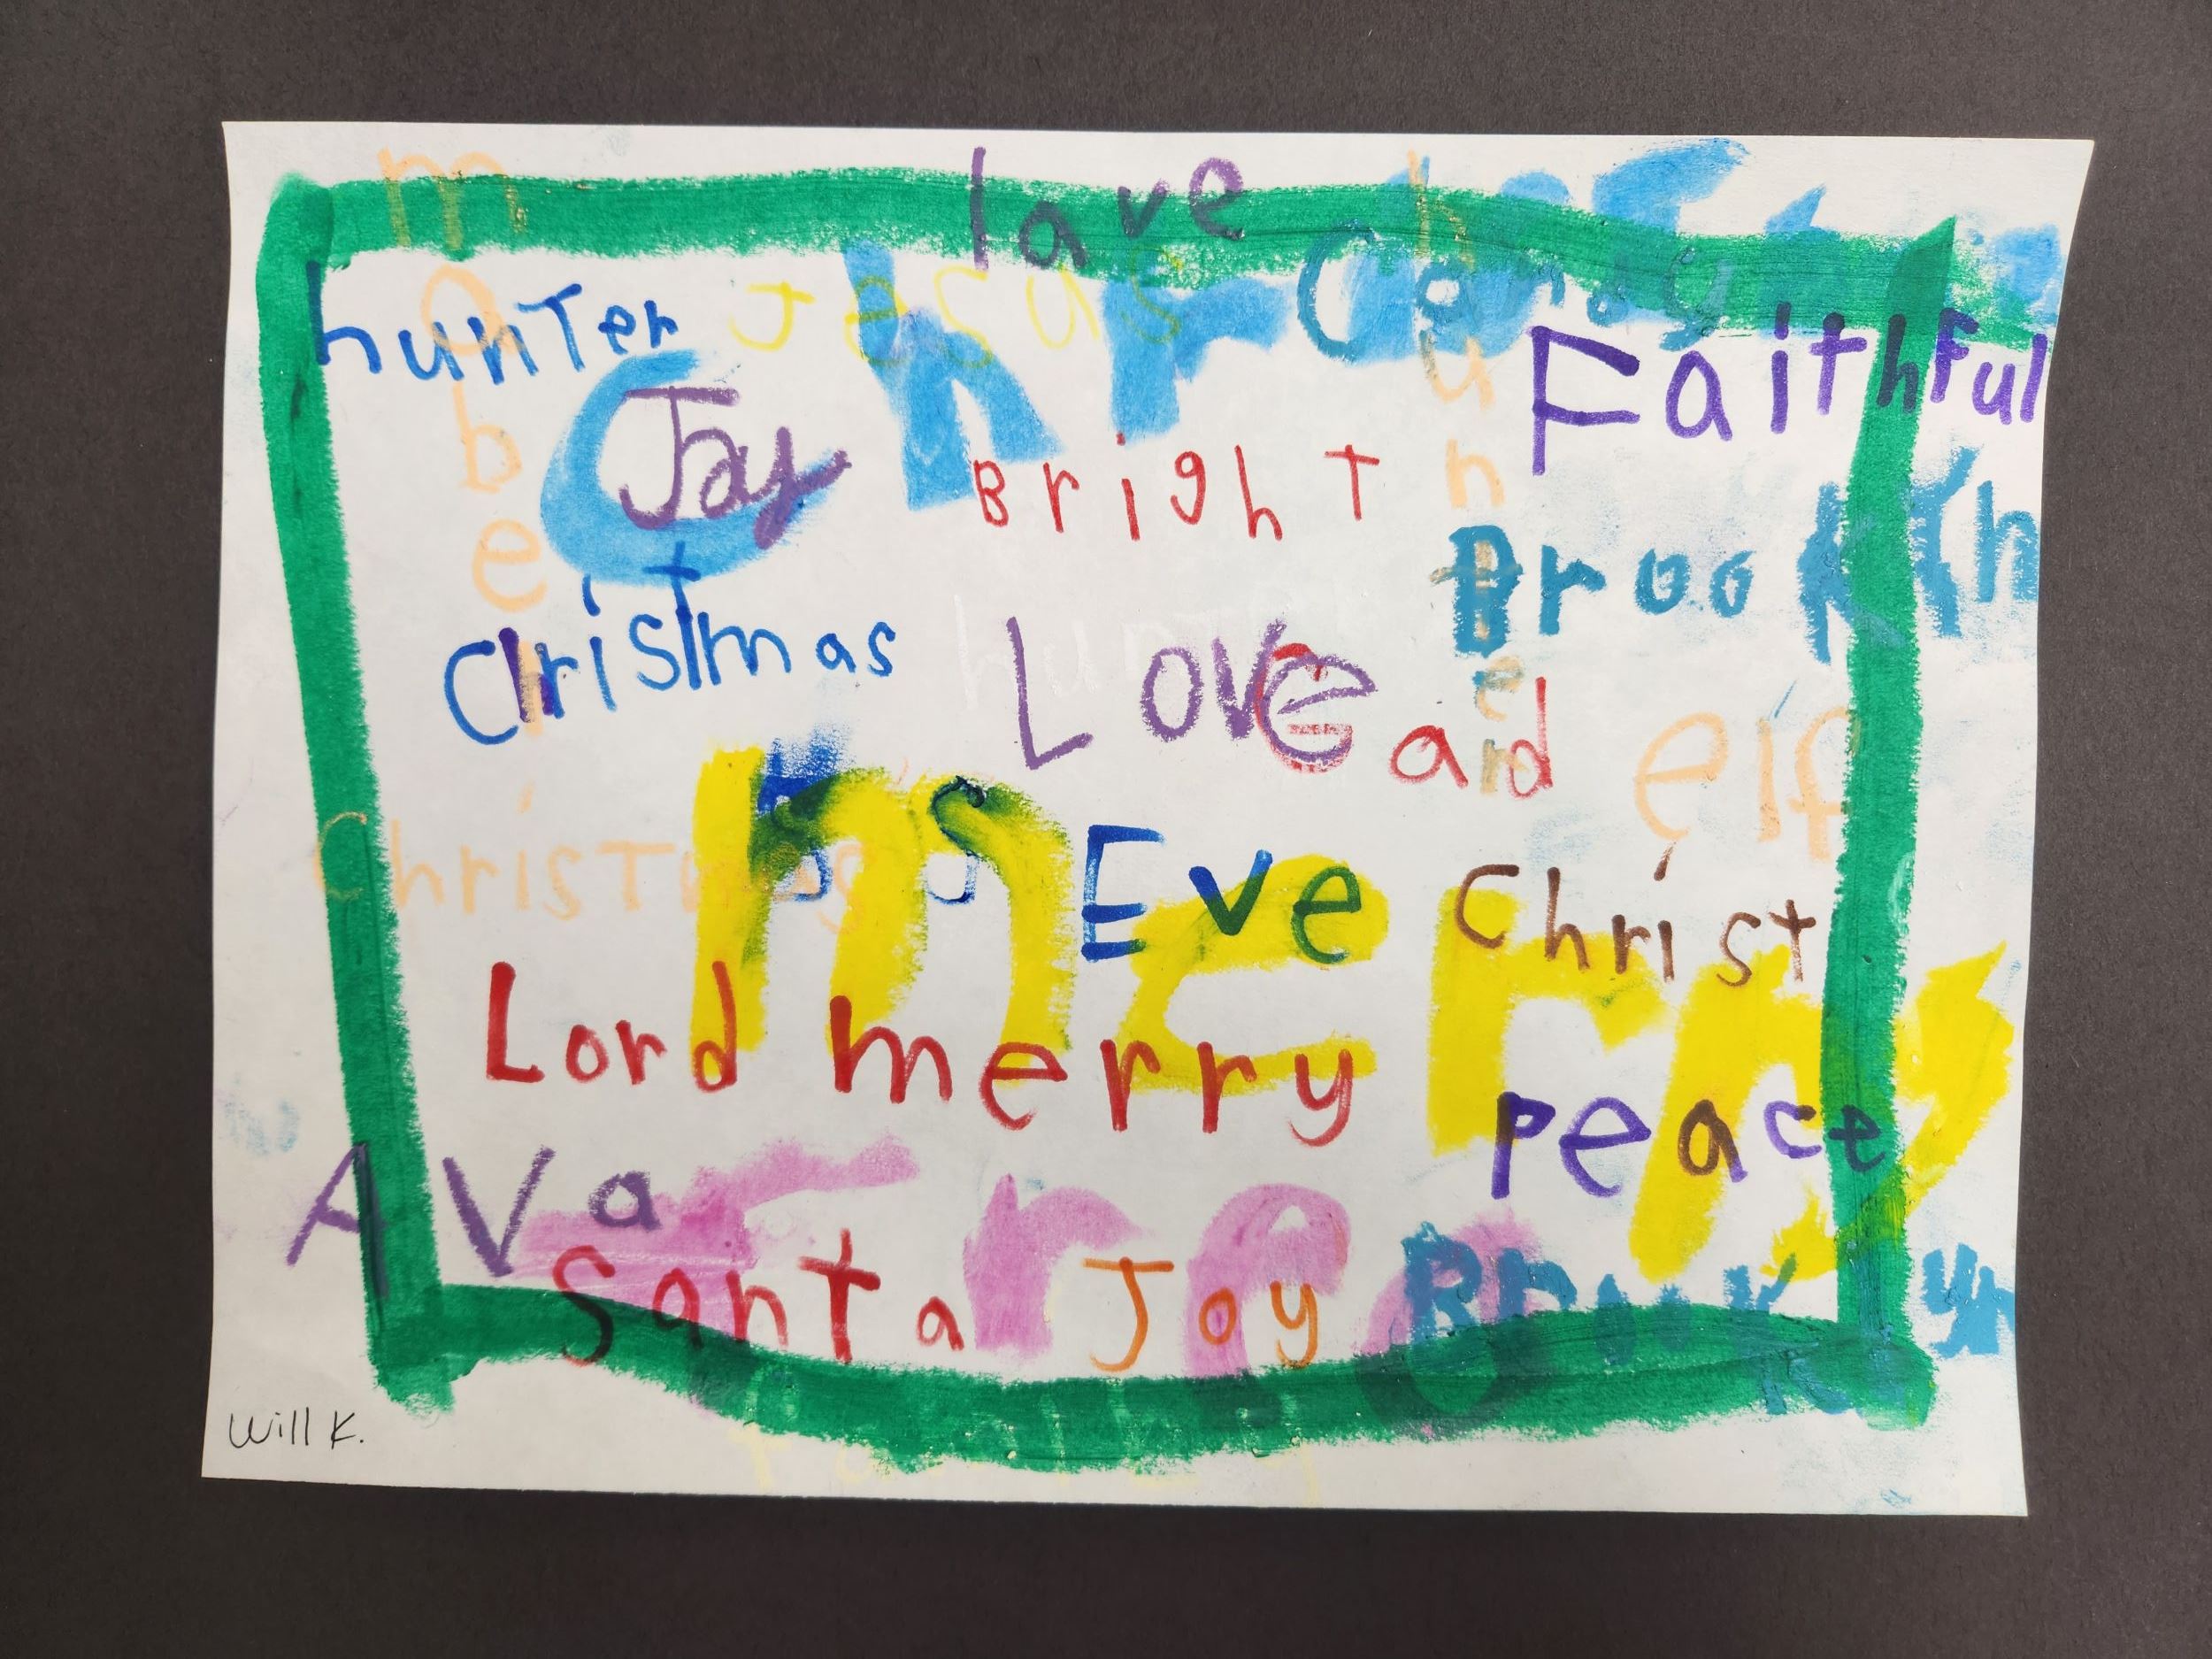 lave
hunter Jesus Candy
Faithful
Joy
Bright
Christmas
Love
ad
elf
hunter
mabel
Christmas
Eve Christ
Lord merry
merry
peace
Ava
Santa Joy
Will K.